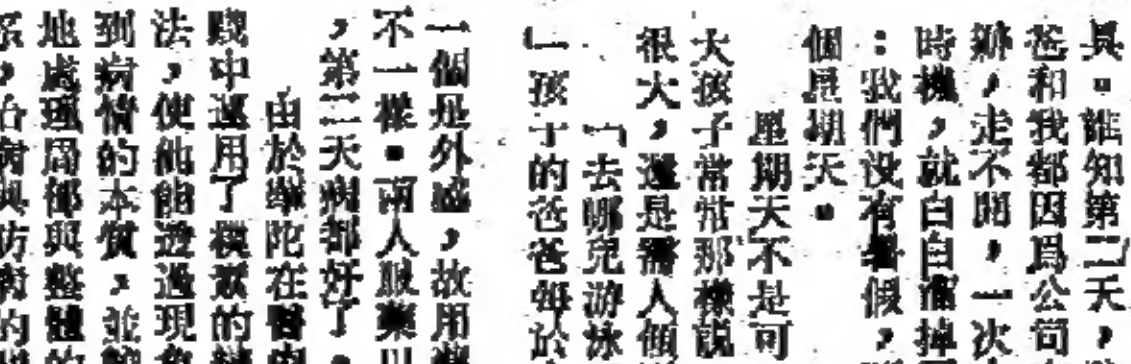 真。誰知第二天，
爸和我都因爲公司
跡，走不開，一次
時機，就白白溜掉
：我們没有暑假，
個星期天。
星期天不是可
大孩子常常那樣説
很大，還是需人傾
「去哪兒游泳
「孩子的爸爸
一個是外感，故用
不一樣。兩人服藥
，第二天病都好了。
由於華陀在醫
踐中運用了樸素的
法，使他能透過現
到病情的本質，並
地處理局部與整體
，治病與防病的